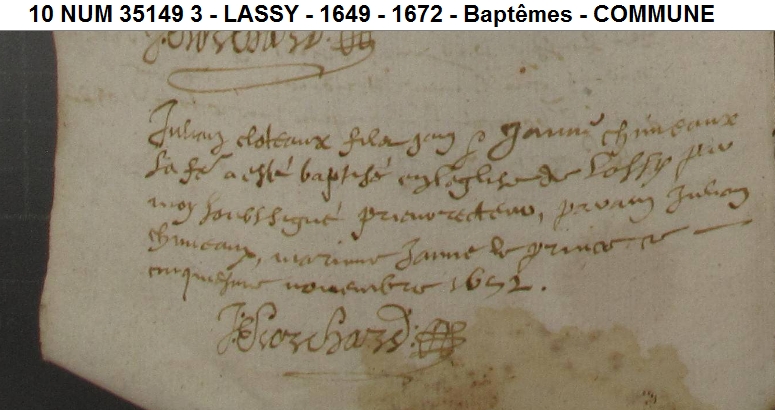 10 NUM 35149 3 - LASSY - 1649 - 1672 - Baptêmes - COMMUNE
Julian cloteaux filz Jan & Janne chineaux
Sa fe a esté baptisé en léglise de Lassy par
moy soubssigné prieur recteur, parain Julian
chineaux, marinne Janne le prince ce
cinquiesme novembre 1652.